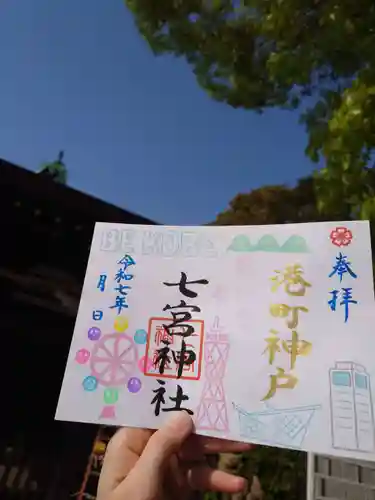 BE KOBE
奉拝
港町神戸
七宮神社
令和七年
月 日